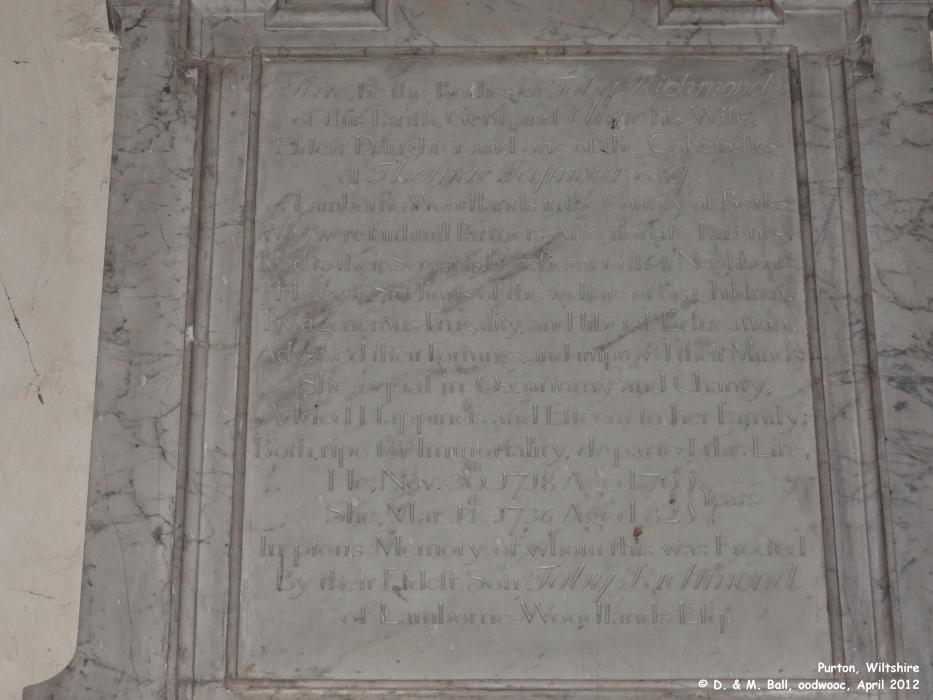 Here lie the Bodies of Toby Richmond
of this Parish, Gent, and Anne his Wife;
Eldest Daughter and one of the Coheiresses
of Thomas Seymour Esq.
of Lamborne Woodlands in the County of Berks:
Who were faithfull Partners, Affectionate Parents,
Kind to their Servants, beneficent to their Neighbours.
He, ever Studious of the welfare of his Children,
By a generous Frugality, and liberal Education,
Advanced their Fortunes, and improv'd their Minds:
She, equal in Oeconomy and Charity,
Added Happiness and Esteem to her Family:
Both, ripe for Immortality, departed this Life,
He, Nov. 30th 1718 Aged 79 } Years
She, Mar. 11th 1736 Aged 82 }
In pious Memory of whom this was Erected
By their Eldest Son Toby Richmond
of Lamborne-Woodlands Esq.
Purton, Wiltshire
© D. & M. Ball, oodwooc, April 2012